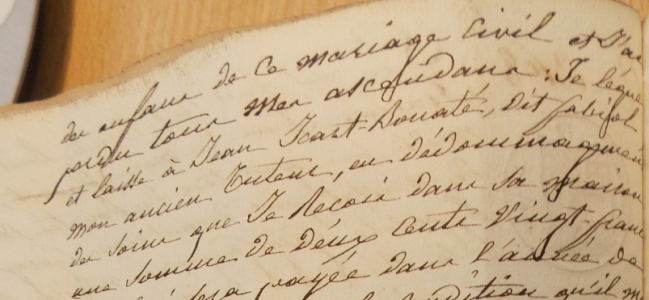 des enfans de ce mariage civil et J'ai
perdu tous mes ascendans : Je légue
et laisse à Jean Donaté, dit
mon ancien tuteur, en dédommagement
des soins que Je Reçois dans sa maison
une somme de deux cents vingt francs
sera payée dans l'année de
qu'il